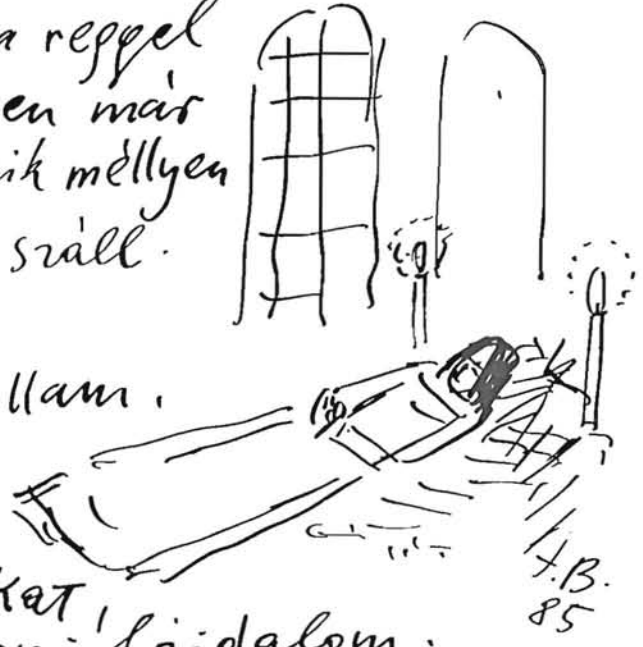 a reggel
en már
ik méllyen
száll.
llam.
kat,
f.B.
85